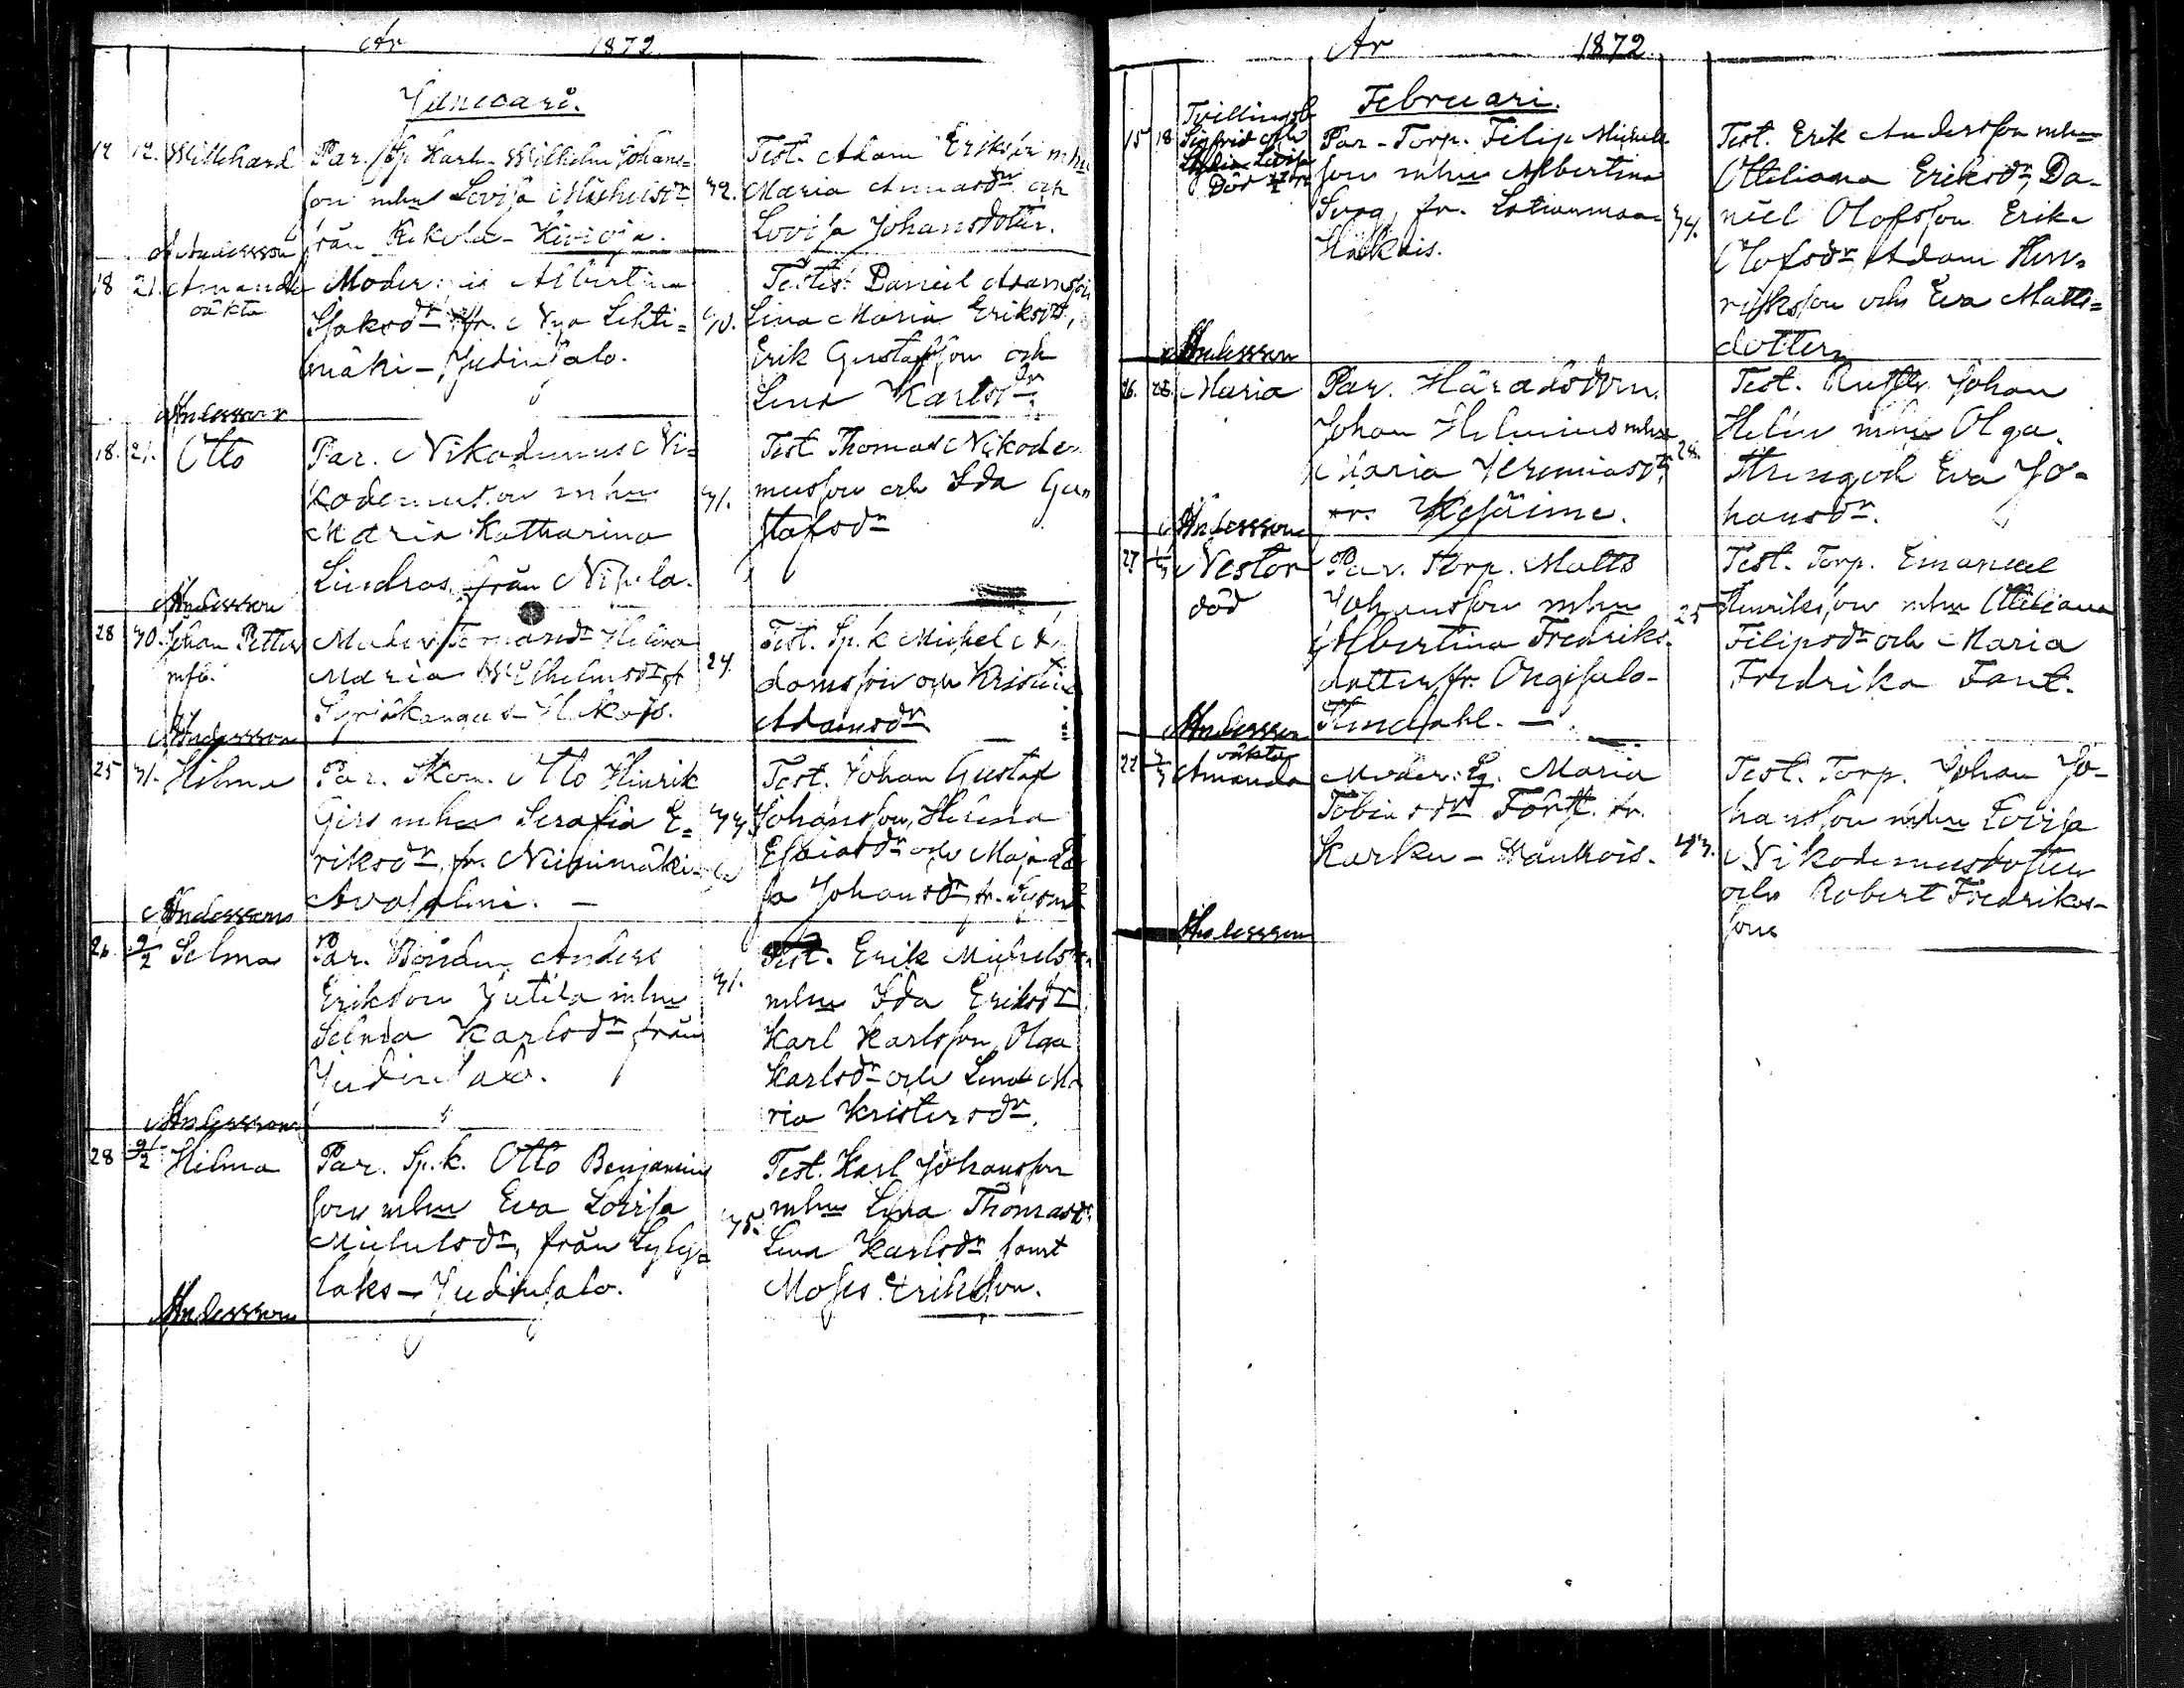 År 1872.
Januari.
17 19. Willehard
Par. Sp. Karl Wilhelm Johans=
son mhu Lovisa Michelsdr
från Kekola - Kivioja.
32.
Test. Adam Eriksson mhu
Maria Annasdr och
Lovisa Johansdotter.
Andersson
18 21. Amanda
oäkta
Moder: pig. Albertina
Isaksdr fr. Nya Lehti=
mäki - Judinsalo.
40.
Testes: Daniel Adamsson
Lina Maria Eriksdr,
Erik Gustafsson och
Lina Karlsdr
Andersson
18. 21. Otto
Par. Nikodemus Ni=
kodemusson mhu
Maria Katharina
Lindros, från Nipula.
31.
Test Thomas Nikode-
musson och Ida Gu-
stafsdr
Andersson
28 30. Johan Petter
Moder Helena
Maria Wilhelmsdr
24.
Test. Sp.k Michel A-
damsson och Kristina
Adamsdr
Andersson
25 31. Hilma
Par. Otto Henrik
Girs mhu Serafia E=
riksdr, fr. Niinimäki-
Avosalmi. -
33
Test. Johan Gustaf
Johansson, Helena
Esaiasdr och Maja
sa Johansdr, fr.
Andersson
26. 2/2 Selma
Par. Bonden Anders
Eriksson Jutila mhu
Selma Karlsdr från
Judinsalo.
31.
Test. Erik Michelsson
mhu Ida Eriksdr
Karl Karlsson, Olga
Karlsdr och Lina Ma
ria Kristersdr.
Andersson
28 9/2 Hilma
Par. Sp.k. Otto Benjamins
son mhu Eva Lovisa
Michelsdr, från Lyly=
laks - Judinsalo.
35.
Test. Karl Johansson
mhu Lina Thomasdr
Lina Karlsdr samt
Moses Eriksson.
Andersson
År 1872.
Februari.
15 18 Tvillingab
Sigfrid och
Lovisa
Död
Par - Torp. Filip Michels
son mhu Albertina
Sorg, fr. Lotionmaa-
Häkkis.
34.
Test. Erik Andersson mhu
Ottiliana Eriksdr, Da-
niel Olofsson Erika
Olofsdr Adam Hen=
riksson och Eva Matts=
dotter
Andersson
26. 28. Maria
Par. Häradsdom.
Johan Helenius mhu
Maria Jeremiasdr,
fr. Kesäime.
28.
Test. Johan
Helin mhu Olga
och Eva Jo-
hansdr.
Andersson
27 Nestor
död
Par. Torp. Matts
Johansson mhu
Albertina Fredriks-
dotter, fr. Ongisalo-
25
Test. Torp. Emanuel
Henriksson mhu Ottiliana
Filipsdr och Maria
Fredrika Fant.
Andersson
22 oäkta
Amanda
Moder: Maria
Tobiasdr Först. fr.
Karku -
43.
Test. Torp. Johan Jo-
hansson mhu Lovisa
Nikodemusdotter
och Robert Fredriks-
son
Andersson